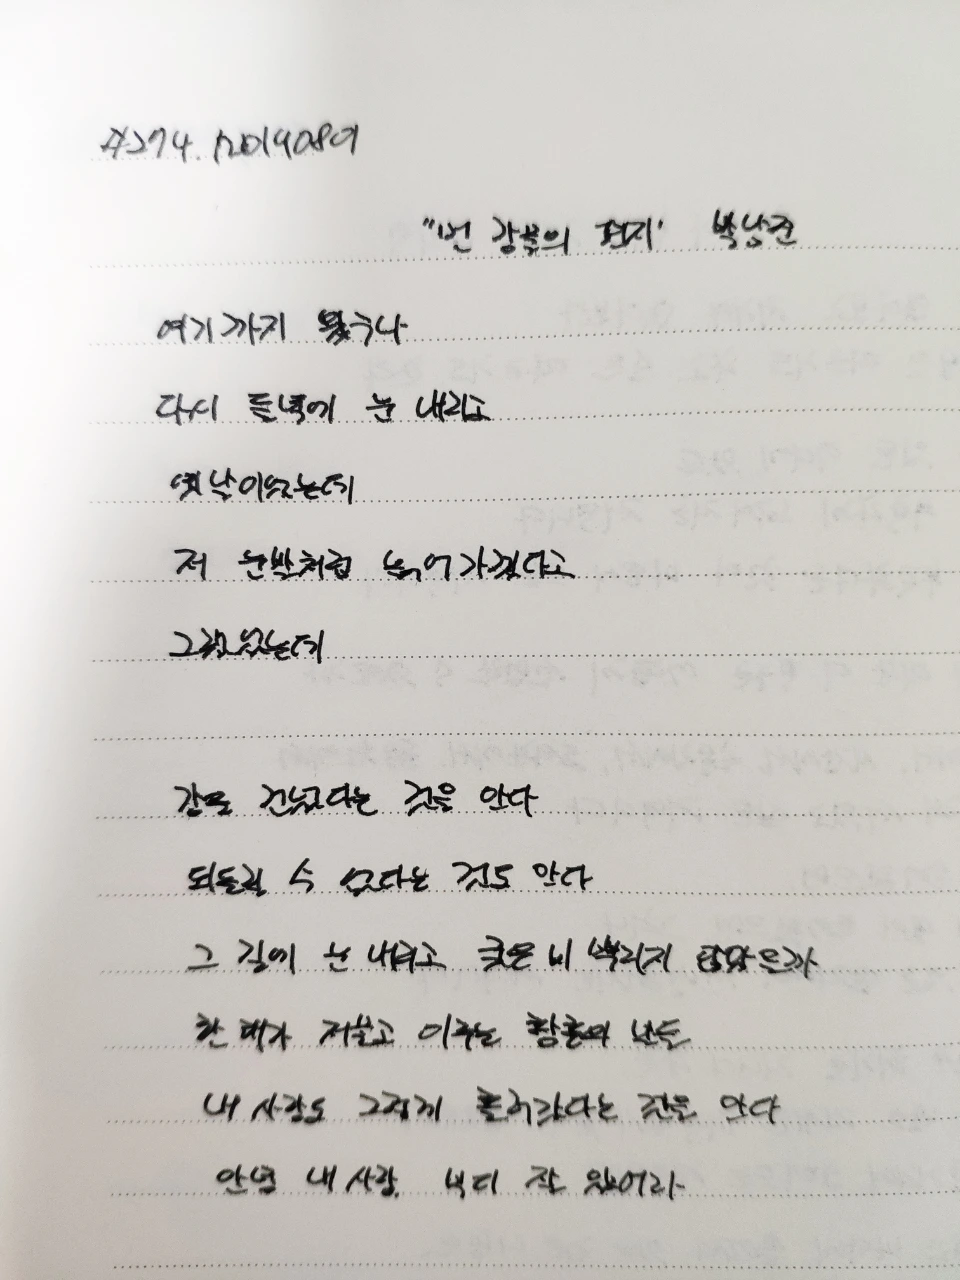 #274. 20190809
"먼 강물의 편지' 박남준
여기까지 왔구나
다시 들녘에 눈 내리고
옛날이었는데
저 눈발처럼 늙어가겠다고
그랬었는데
강을 건넜다는 것을 안다
되돌릴 수 없다는 것도 안다
그 길에 눈 내려고 궂은 비 뿌리지 않았을까
한 해가 저물고 이루는 황홀의 날들
내 사랑도 그렇게 흘러갔다는 것을 안다
안녕 내 사랑, 부디 잘 있어라